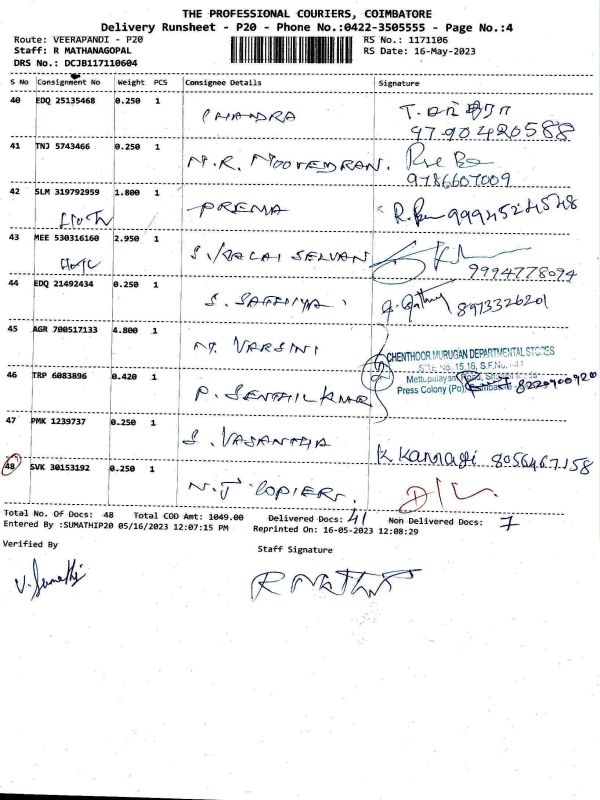 THE PROFESSIONAL COURIERS, COIMBATORE
Delivery Runsheet - P20 - Phone No.:0422-3505555 - Page No.:4
Route: VEERAPANDI - P20 RS No.: 1171106
Staff: R MATHANAGOPAL RS Date: 16-May-2023
DRS No.: DCJB117110604
S No Consignment No Weight PCS Consignee Details Signature
40 EDQ 25135468 0.250 1 CHANDRA
9790420588
41 TNJ 5743466 0.250 1 N.R.
9786607009
42 SLM 319792959 1.800 1 PREMA 9994524548
43 MEE 530316160 2.950 1 S. SELVAN
9994778094
44 EDQ 21492434 0.250 1 S. SATHIYA 8973326201
45 AGR 700517133 4.800 1 VARSINI
CHENTHOOR MURUGAN DEPARTMENTAL STORES
S.F.No.
46 TRP 6083896 0.420 1 P. SENTHIL KUMAR Mettupalayam Road,
Press Colony (Po), 8220900920
47 PMK 1239737 0.250 1 S. VASANTHA K. Kannagi 8056467158
48 SVK 30153192 0.250 1 N.J COPIERS.
Total No. Of Docs: 48 Total COD Amt: 1049.00 Delivered Docs: 41 Non Delivered Docs: 7
Entered By :SUMATHIP20 05/16/2023 12:07:15 PM Reprinted On: 16-05-2023 12:08:29
Verified By Staff Signature
V. Sumathi